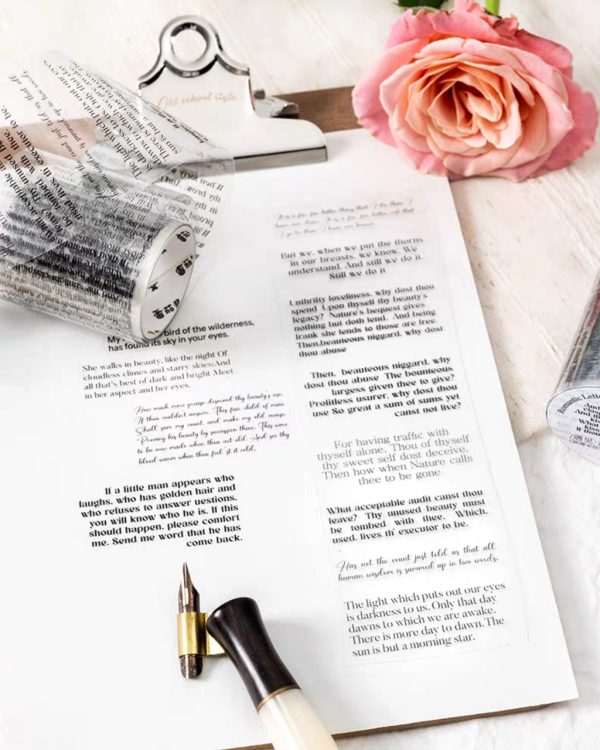 Old school style
My bird of the wilderness,
has found its sky in your eyes.
She walks in beauty, like the night Of
cloudless climes and starry skies:And
all that's best of dark and bright Meet
in her aspect and her eyes.
How much more praise deserved thy beauty's use,
If thou couldst answer This fair child of mine
Shall sum my count, and make my old excuse,
Proving his beauty by succession thine. This were
to be new made when thou art old, And see thy
blood warm when thou feel'st it cold.
If a little man appears who
laughs, who has golden hair and
who refuses to answer uestions,
you will know who he is. If this
should happen, please comfort
me. Send me word that he has
come back.
It is a far, far better thing that I do, than I
have ever done; It is a far, far better rest that
I go to, than I have ever known.
But we, when we put the thorns
in our breasts, we know. We
understand. And still we do it.
Still we do it
Unthrifty loveliness, why dost thou
spend Upon thyself thy beauty's
legacy? Nature's bequest gives
nothing but doth lend, And being
frank she lends to those are free.
Then,beauteous niggard, why dost
thou abuse
Then, beauteous niggard, why
dost thou abuse The bounteous
largess given thee to give?
Profitless usurer, why dost thou
use So great a sum of sums yet
canst not live?
For having traffic with
thyself alone, Thou of thyself
thy sweet self dost deceive.
Then how when Nature calls
thee to be gone
What acceptable audit canst thou
leave? Thy unused beauty must
be tombed with thee, Which,
used, lives th' executor to be.
Has not the count just told us that all
human wisdom is summed up in two words,
The light which puts out our eyes
is darkness to us. Only that day
dawns to which we are awake.
There is more day to dawn. The
sun is but a morning star.